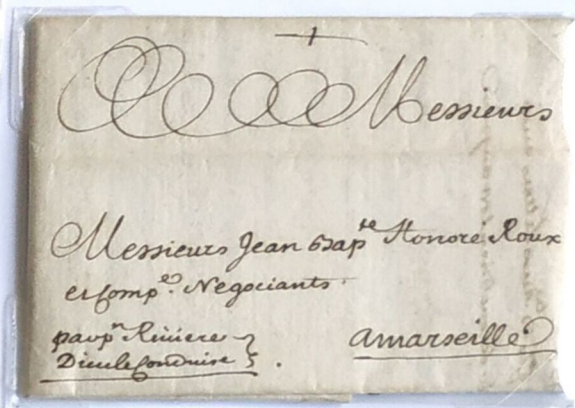 Messieurs
Messieurs Jean Bap.te Honoré Roux
et Comp.e Negociants.
Riviere
Dieu le Conduise
a marseille